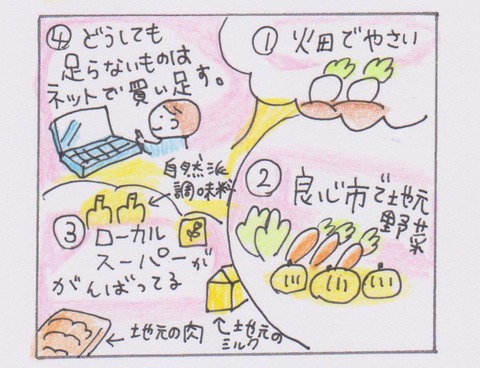 ① 畑でやさい
② 良心市で地元
野菜
③ ローカル
スーパーが
がんばってる
自然派
調味料
←地元の肉
地元の
ミルク
④ どうしても
足らないものは
ネットで買い足す。